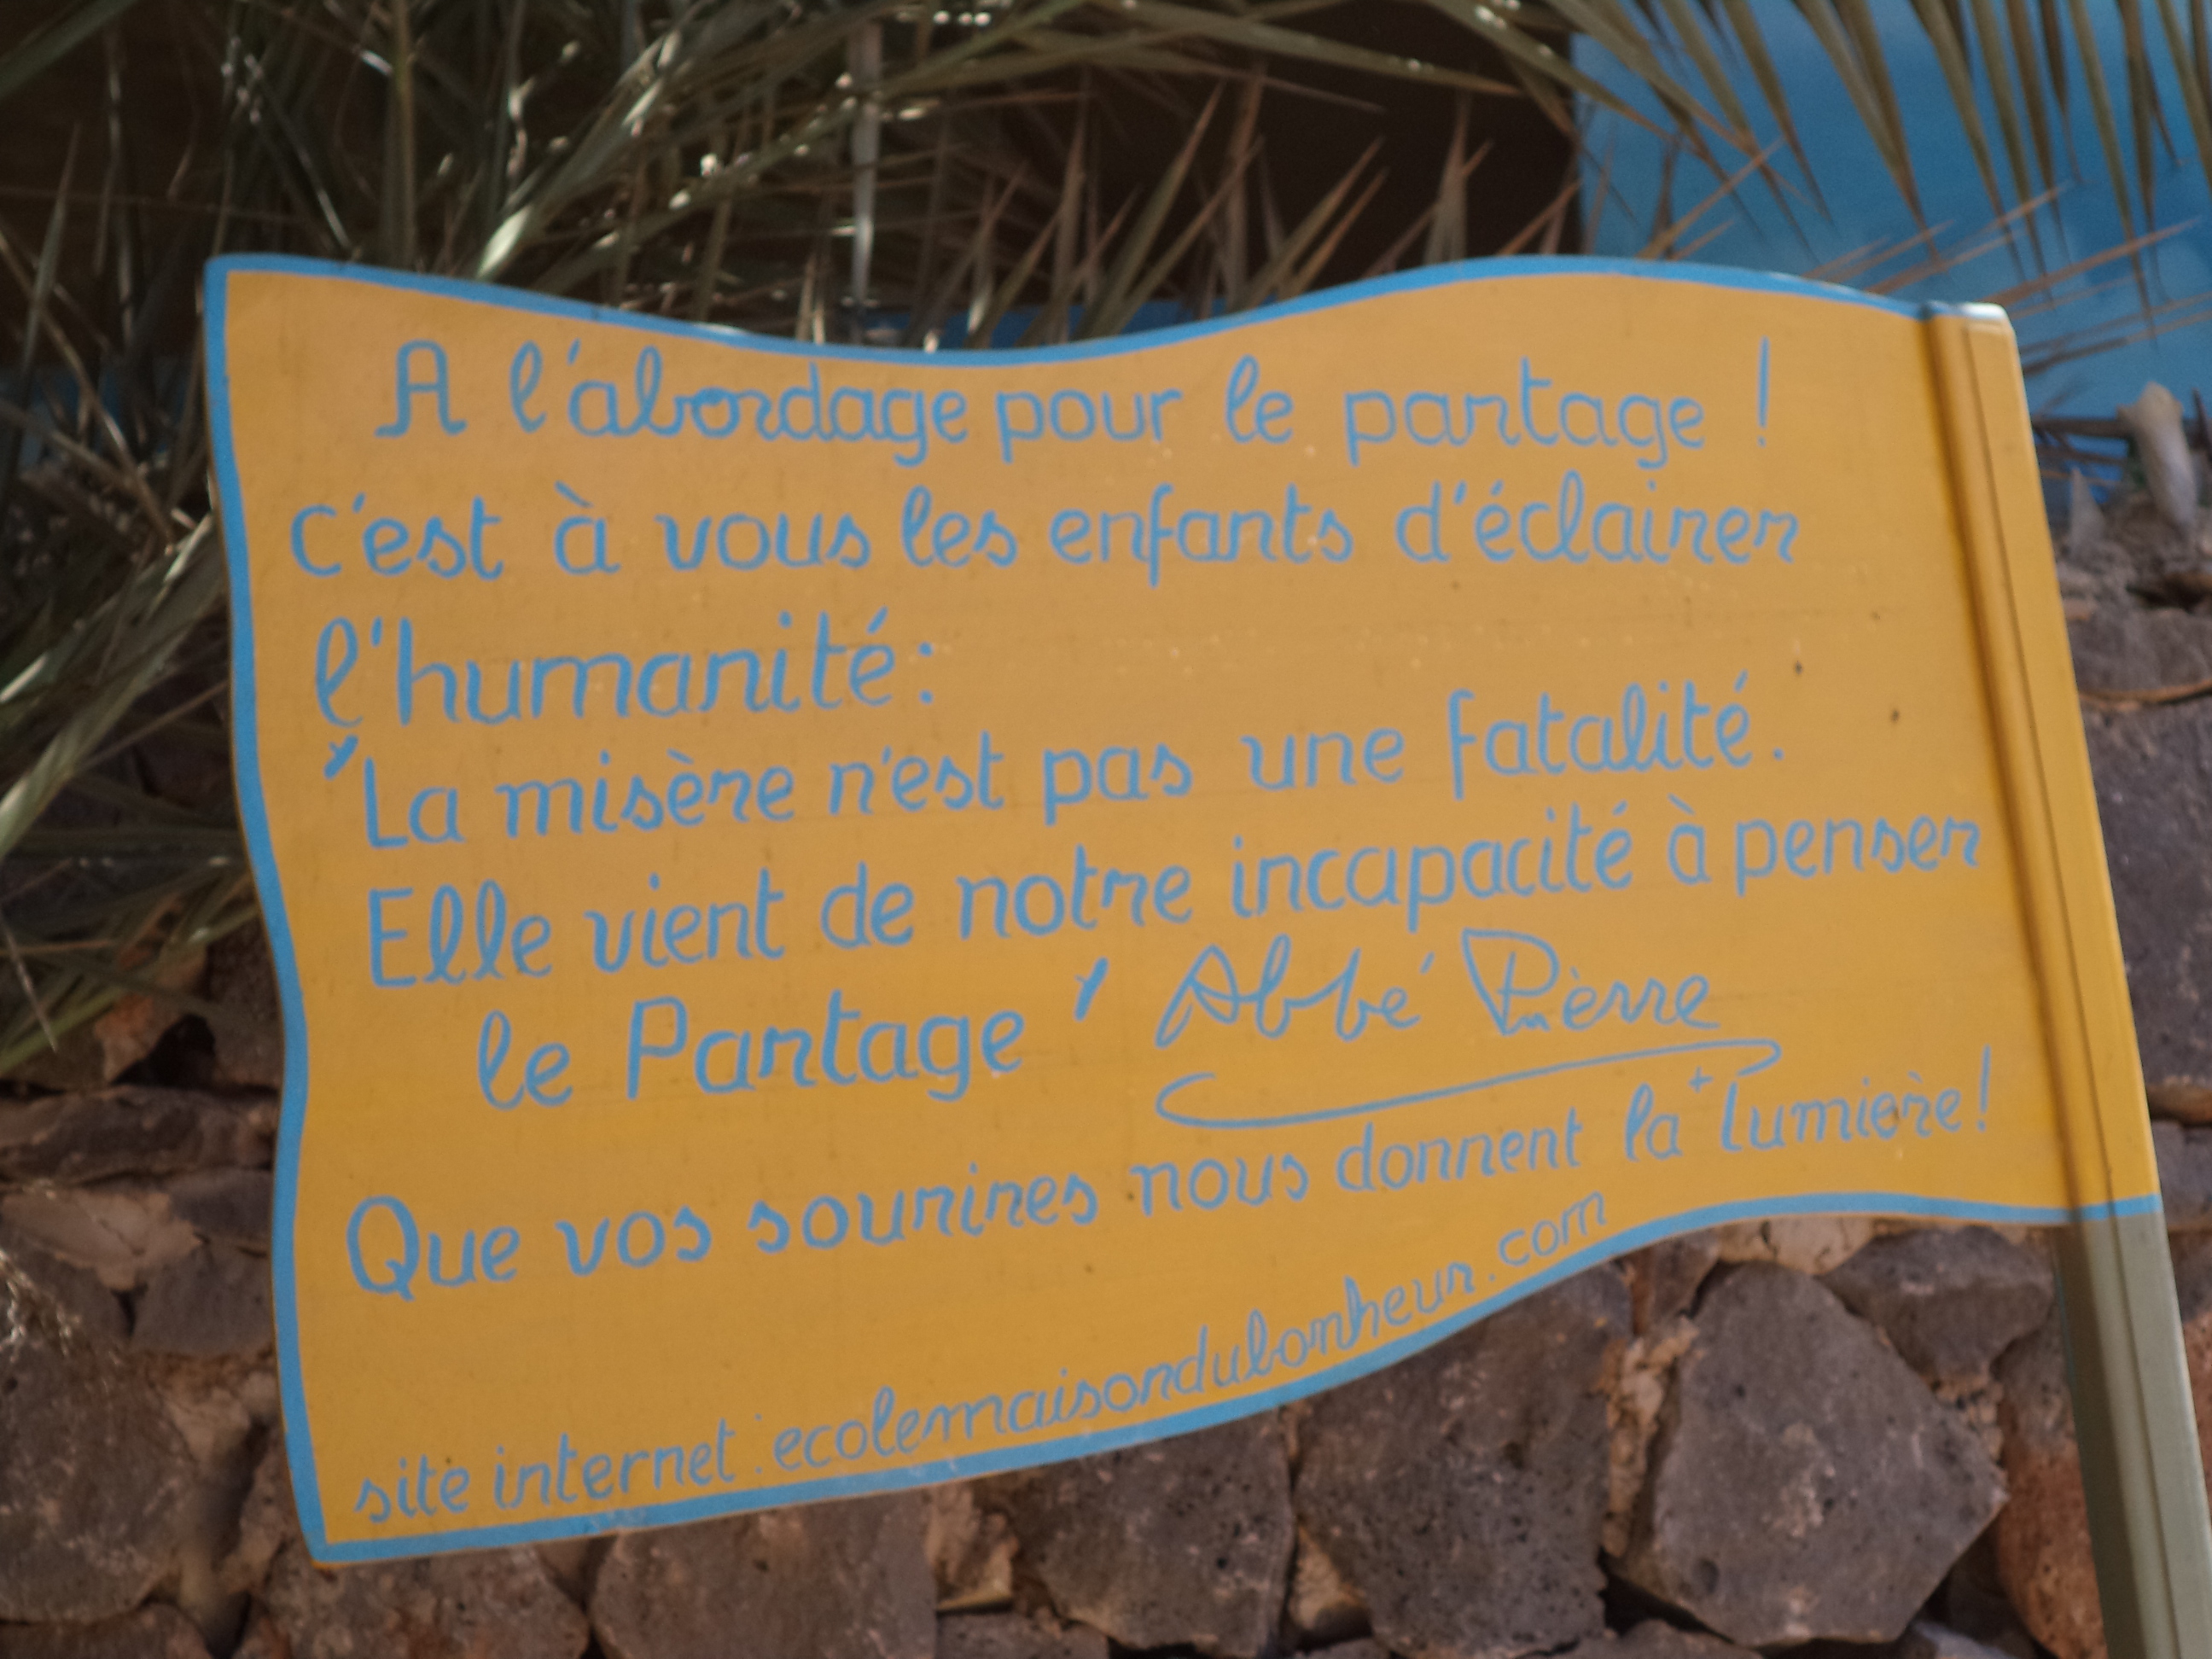 A l'abordage pour le partage !
c'est à vous les enfants d'éclairer
l'humanité:
"La misère n'est pas une fatalité.
Elle vient de notre incapacité à penser
le Partage" Abbé Pierre
Que vos sourires nous donnent la lumière!
site internet : ecolemaisondubonheur.com